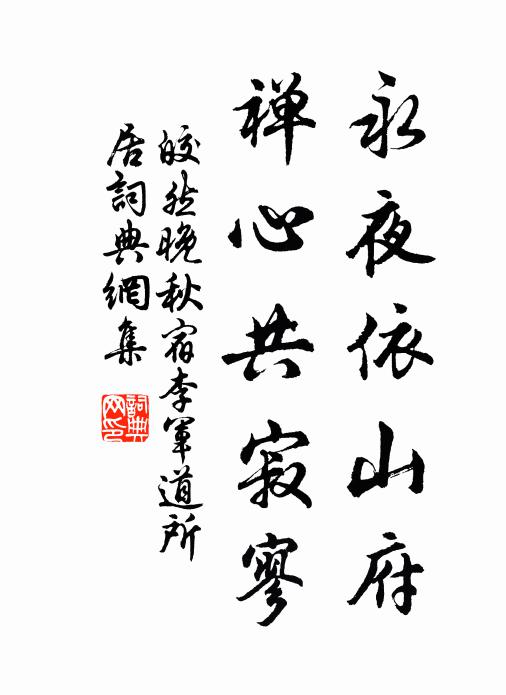 永夜依山府
禅心共寂寥
皎然晚秋宿李军道所
居詞典網集
詞典网印